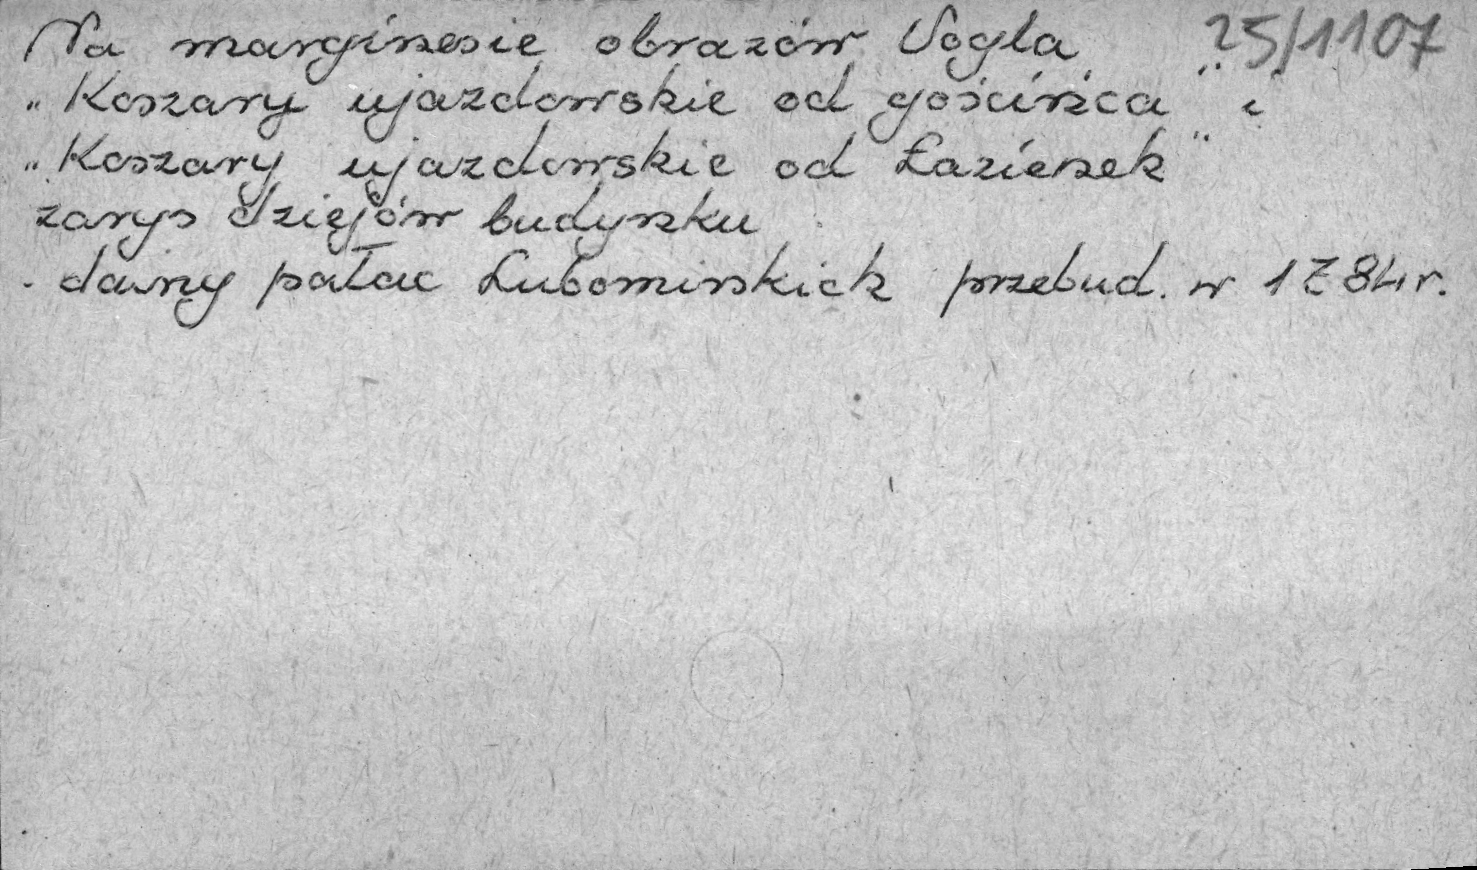 Na marginesie obrazów Vogla 25/1107
„Koszary ujazdowskie od gościńca" i
„Koszary ujazdowskie od Łazienek"
zarys dziejów budynku
- dawny pałac Lubomirskich przebud. w 1784 r.